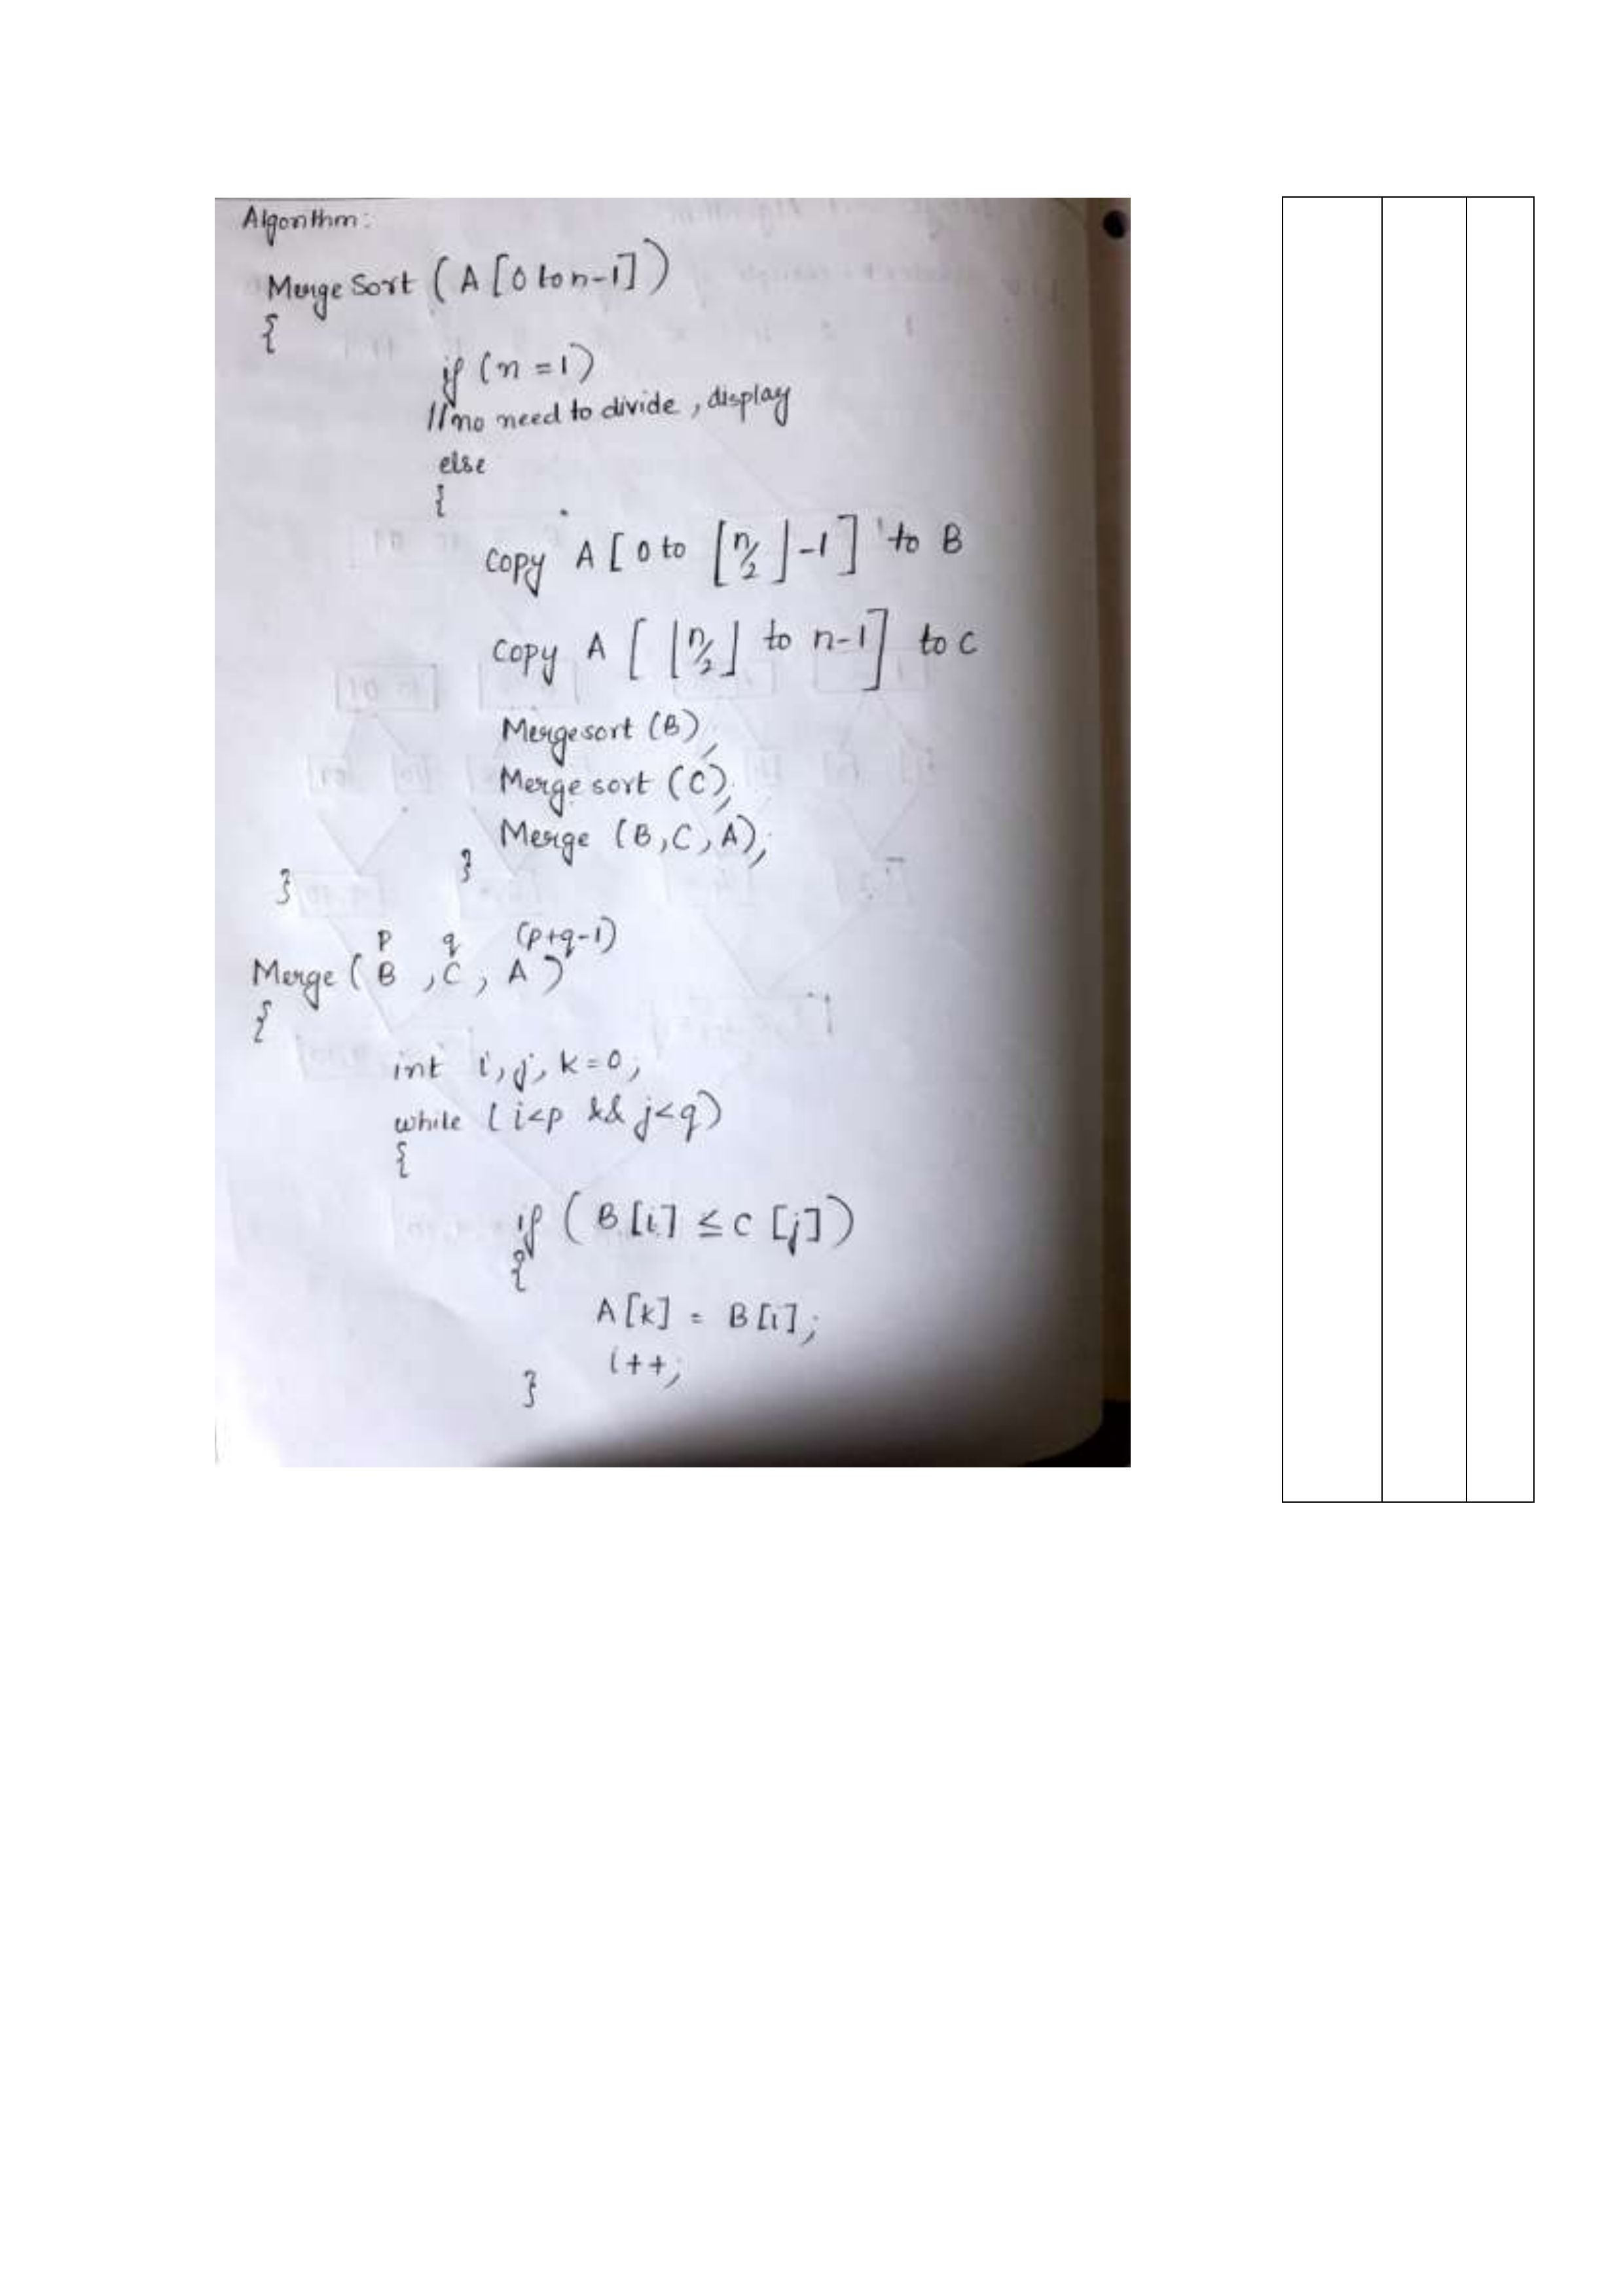 Algorithm:
Merge Sort ( A [ 0 to n-1] )
{
if (n = 1)
//no need to divide , display
else
{
copy A [ 0 to ⌊n/2⌋ -1 ] to B
copy A [ ⌊n/2⌋ to n-1 ] to C
Mergesort (B) ;
Merge sort (C);
Merge (B,C,A);
}
}
p q (p+q-1)
Merge ( B , C , A )
{
int i, j, k = 0;
while ( i<p && j<q)
{
if ( B [i] ≤ C [j] )
{
A[k] = B[i];
i++;
}